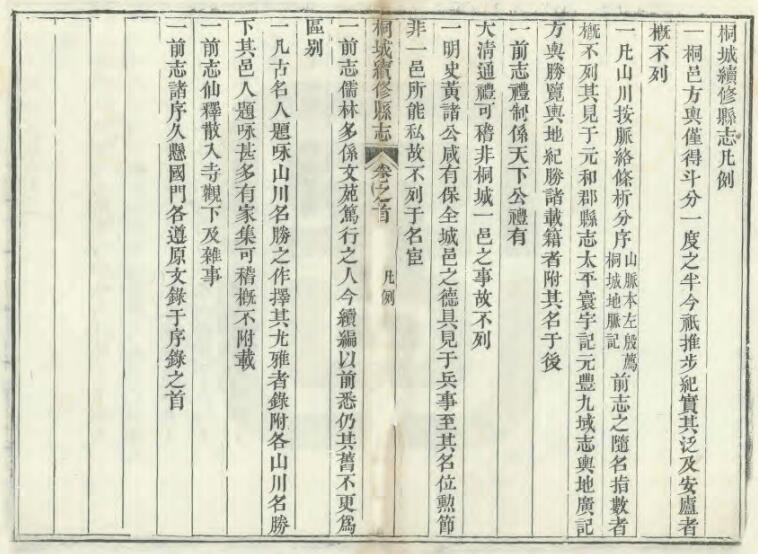 桐城續修縣志凡例
一桐邑方輿僅得斗分一度之半今祇推步紀實其泛及安廬者
概不列
一凡山川按脈絡條析分序山脈本左殷薦桐城地脈記前志之隨名指數者
概不列其見于元和郡縣志太平寰宇記元豐九域志輿地廣記
方輿勝覽輿地紀勝諸載籍者附其名于後
一前志禮制係天下公禮有
大清通禮可稽非桐城一邑之事故不列
一明史黃諸公咸有保全城邑之德具見于兵事至其名位勲節
非一邑所能私故不列于名宦
桐城續修縣志 卷之首 凡例
一前志儒林多係文苑篤行之人今續編以前悉仍其舊不更為
區别
一凡古名人題咏山川名勝之作擇其尤雅者錄附各山川名勝
下其邑人題咏甚多有家集可稽概不附載
一前志仙釋散入寺觀下及雜事
一前志諸序久懸國門各遵原文錄于序錄之首